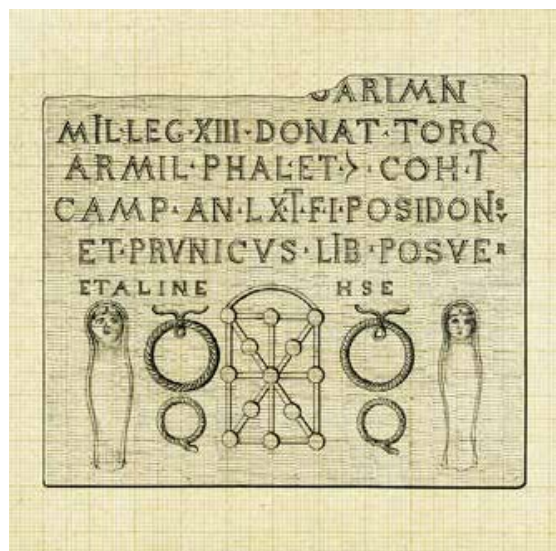 ARIMN
MIL·LEG·XIII·DONAT·TORQ
ARMIL·PHAL·ET·>·COH·I
CAMP·AN·LXI·FI·POSIDONSV
ET·PRVNICVS·LIB·POSVER
ETALINE HSE